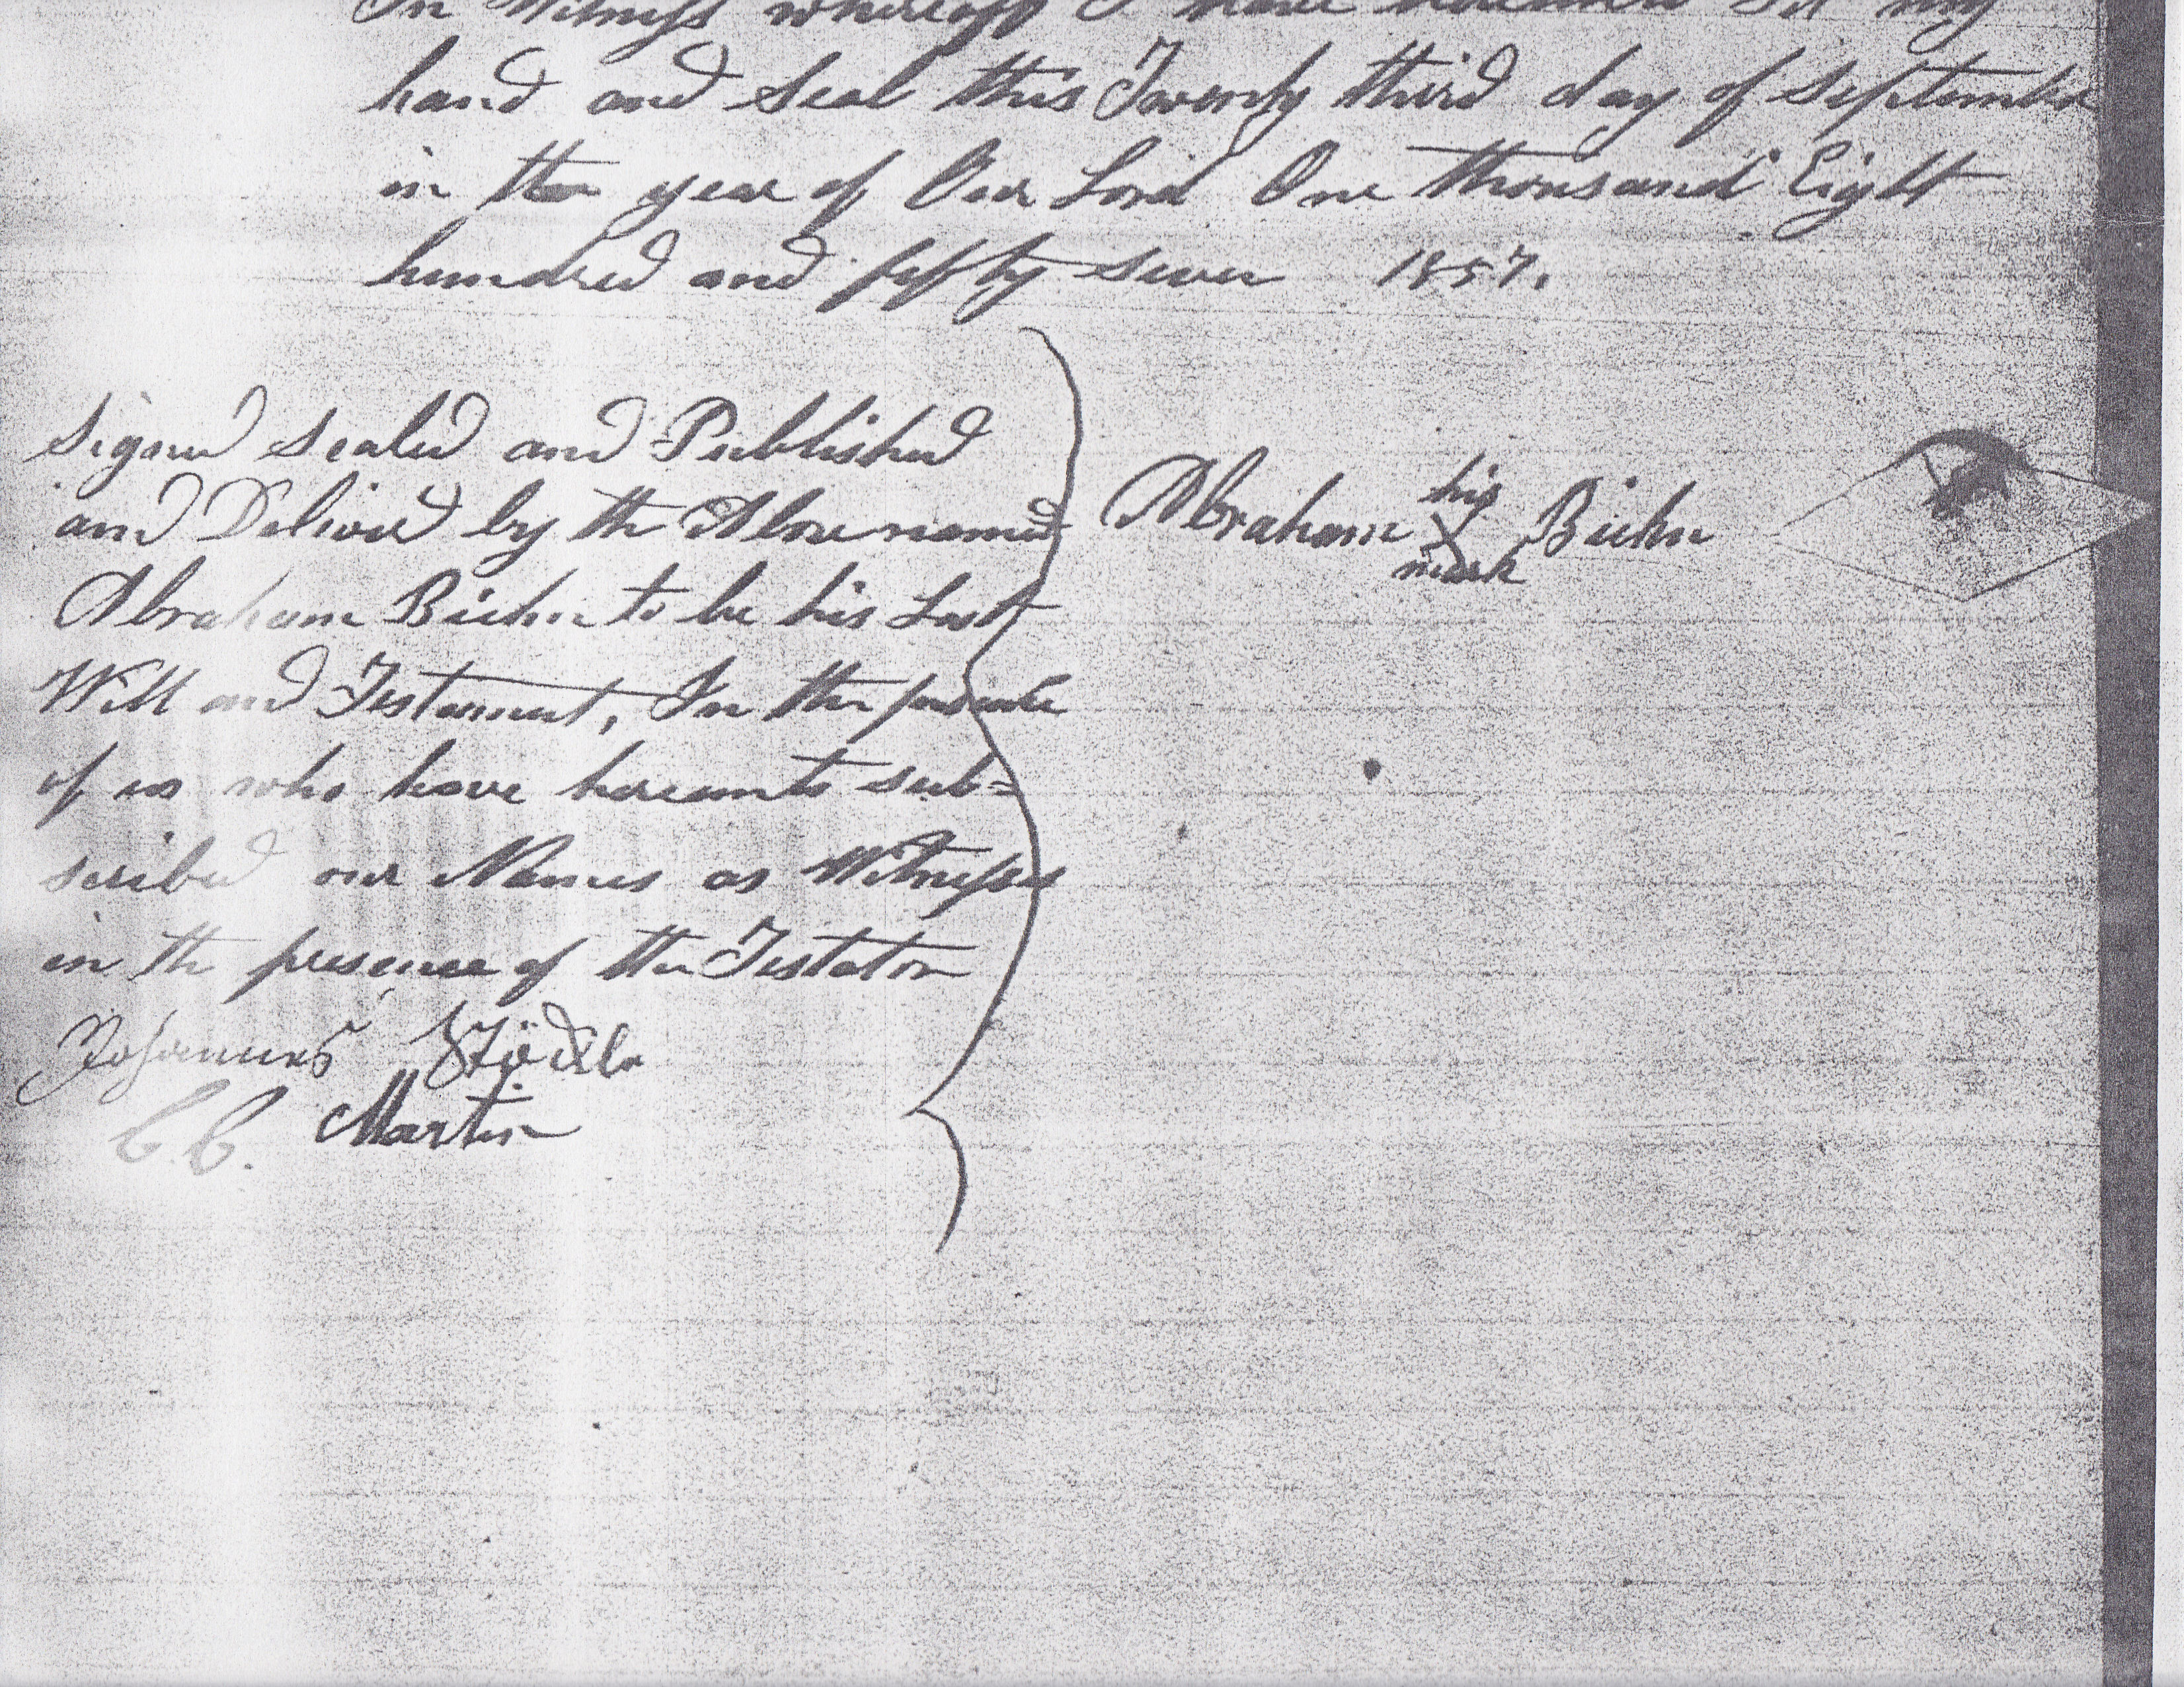 In Witness whereoff I have hereunto set my
hand and Seal this Twenty third day of September
in the year of Our Lord One thousand Eight
hundred and fifty seven 1857.
Signed Sealed and Published
and Deliverd by the Above named
Abraham Biehn to be his Last
Will and Testament, In the
of us who have hereunto sub=
scribed our Names as Witnesses
in the presence of the Testator
Johannes
C. C. Martin
Abraham his X mark Biehn